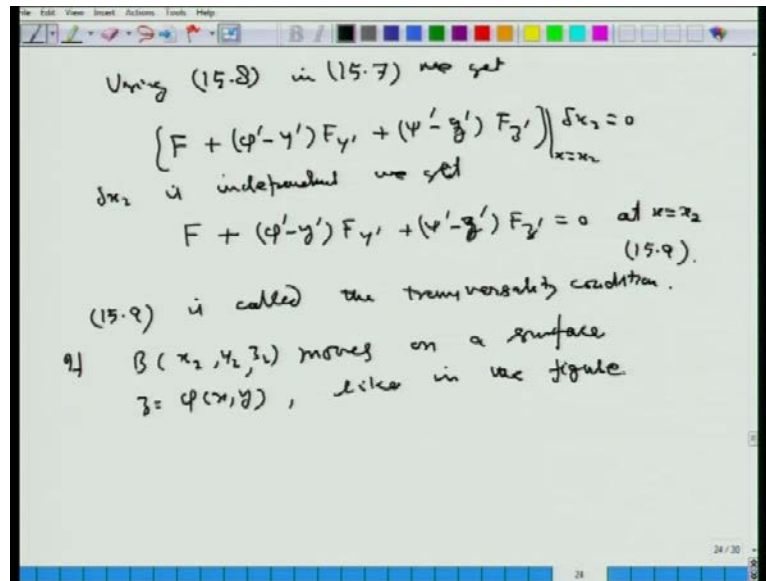 File Edit View Insert Actions Tools Help
Using (15.8) in (15.7) we get
[F + (φ'-y') F_y' + (ψ'-z') F_z']|_{x=x₂} δx₂ = 0
δx₂ is independent we get
F + (φ'-y') F_y' + (ψ'-z') F_z' = 0 at x=x₂
(15.9).
(15.9) is called the transversality condition.
If B(x₂, y₂, z₂) moves on a surface
z = φ(x,y), like in the figure.
24 / 30
24